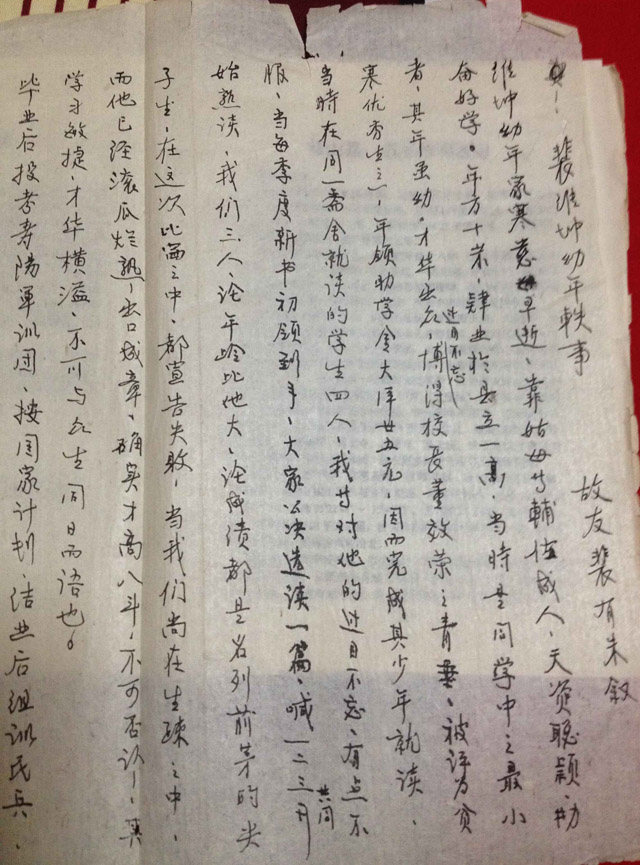 裴维坤幼年轶事
故友裴有朱叙
维坤幼年家寒慈母早逝、靠姑母辅佐成人、天资聪颖、勤
奋好学。年方十岁、肄业于县立一高、当时是同学中之最小
者、其年虽幼、才华出众、过目不忘、博得校长董效荣之青垂、被评为贫
寒优秀生之一、年领助学金大洋廿五元、因而完成其少年就读、
当时在同一斋舍就读的学生四人、我等对他的过目不忘、有点不
服、当每季度新书初领到手、大家公决选读一篇、喊一二三共同开
始熟读、我们三人、论年龄比他大、论成绩都是名列前茅的尖
子生、在这次比谝之中、都宣告失败、当我们尚在生疎之中、
而他已经滚瓜烂熟、出口成章、确实才高八斗、不可否认、其
学习敏捷、才华横溢、不可与众生同日而语也。
毕业后投考寿阳军训团、按国家计划、结业后组训民兵、